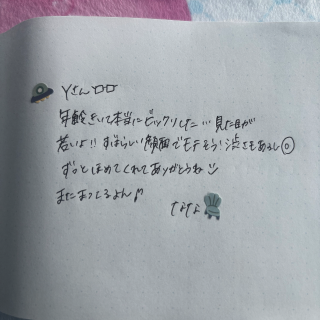 Yさん
年齢きいて本当にビックリした… 見た目が
若いよ!! すばらしい顔面でモテそう! 渋さもあるし◎
ずっとほめてくれてありがとうね
またまってるよん♪
ななよ